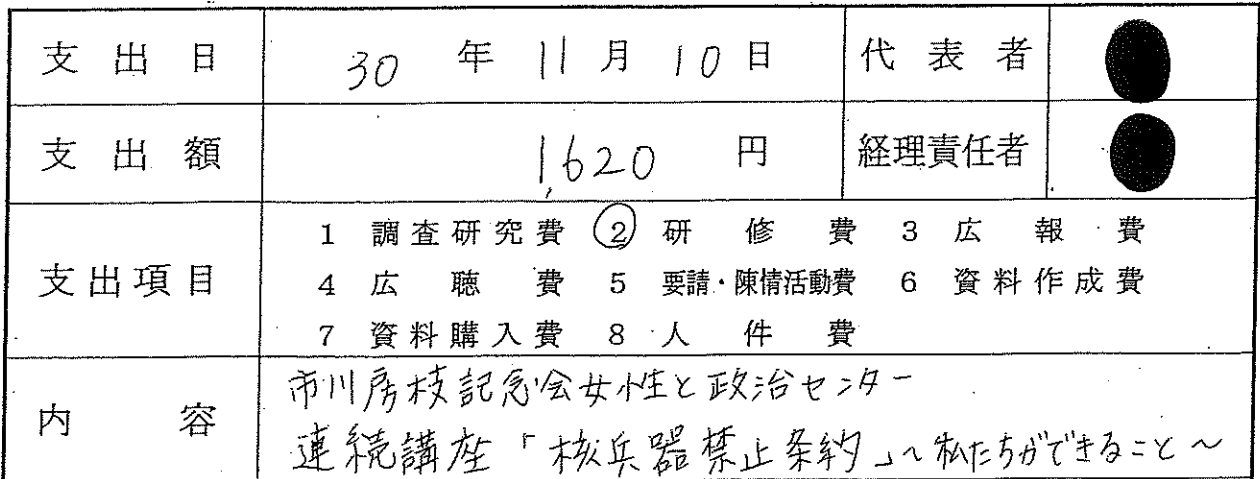 支出日 30年11月10日 代表者
支出額 1,620円 経理責任者
支出項目
1 調査研究費 ② 研修費 3 広報費
4 広聴費 5 要請・陳情活動費 6 資料作成費
7 資料購入費 8 人件費
内容
市川房枝記念会女性と政治センター
連続講座「核兵器禁止条約」~私たちができること~